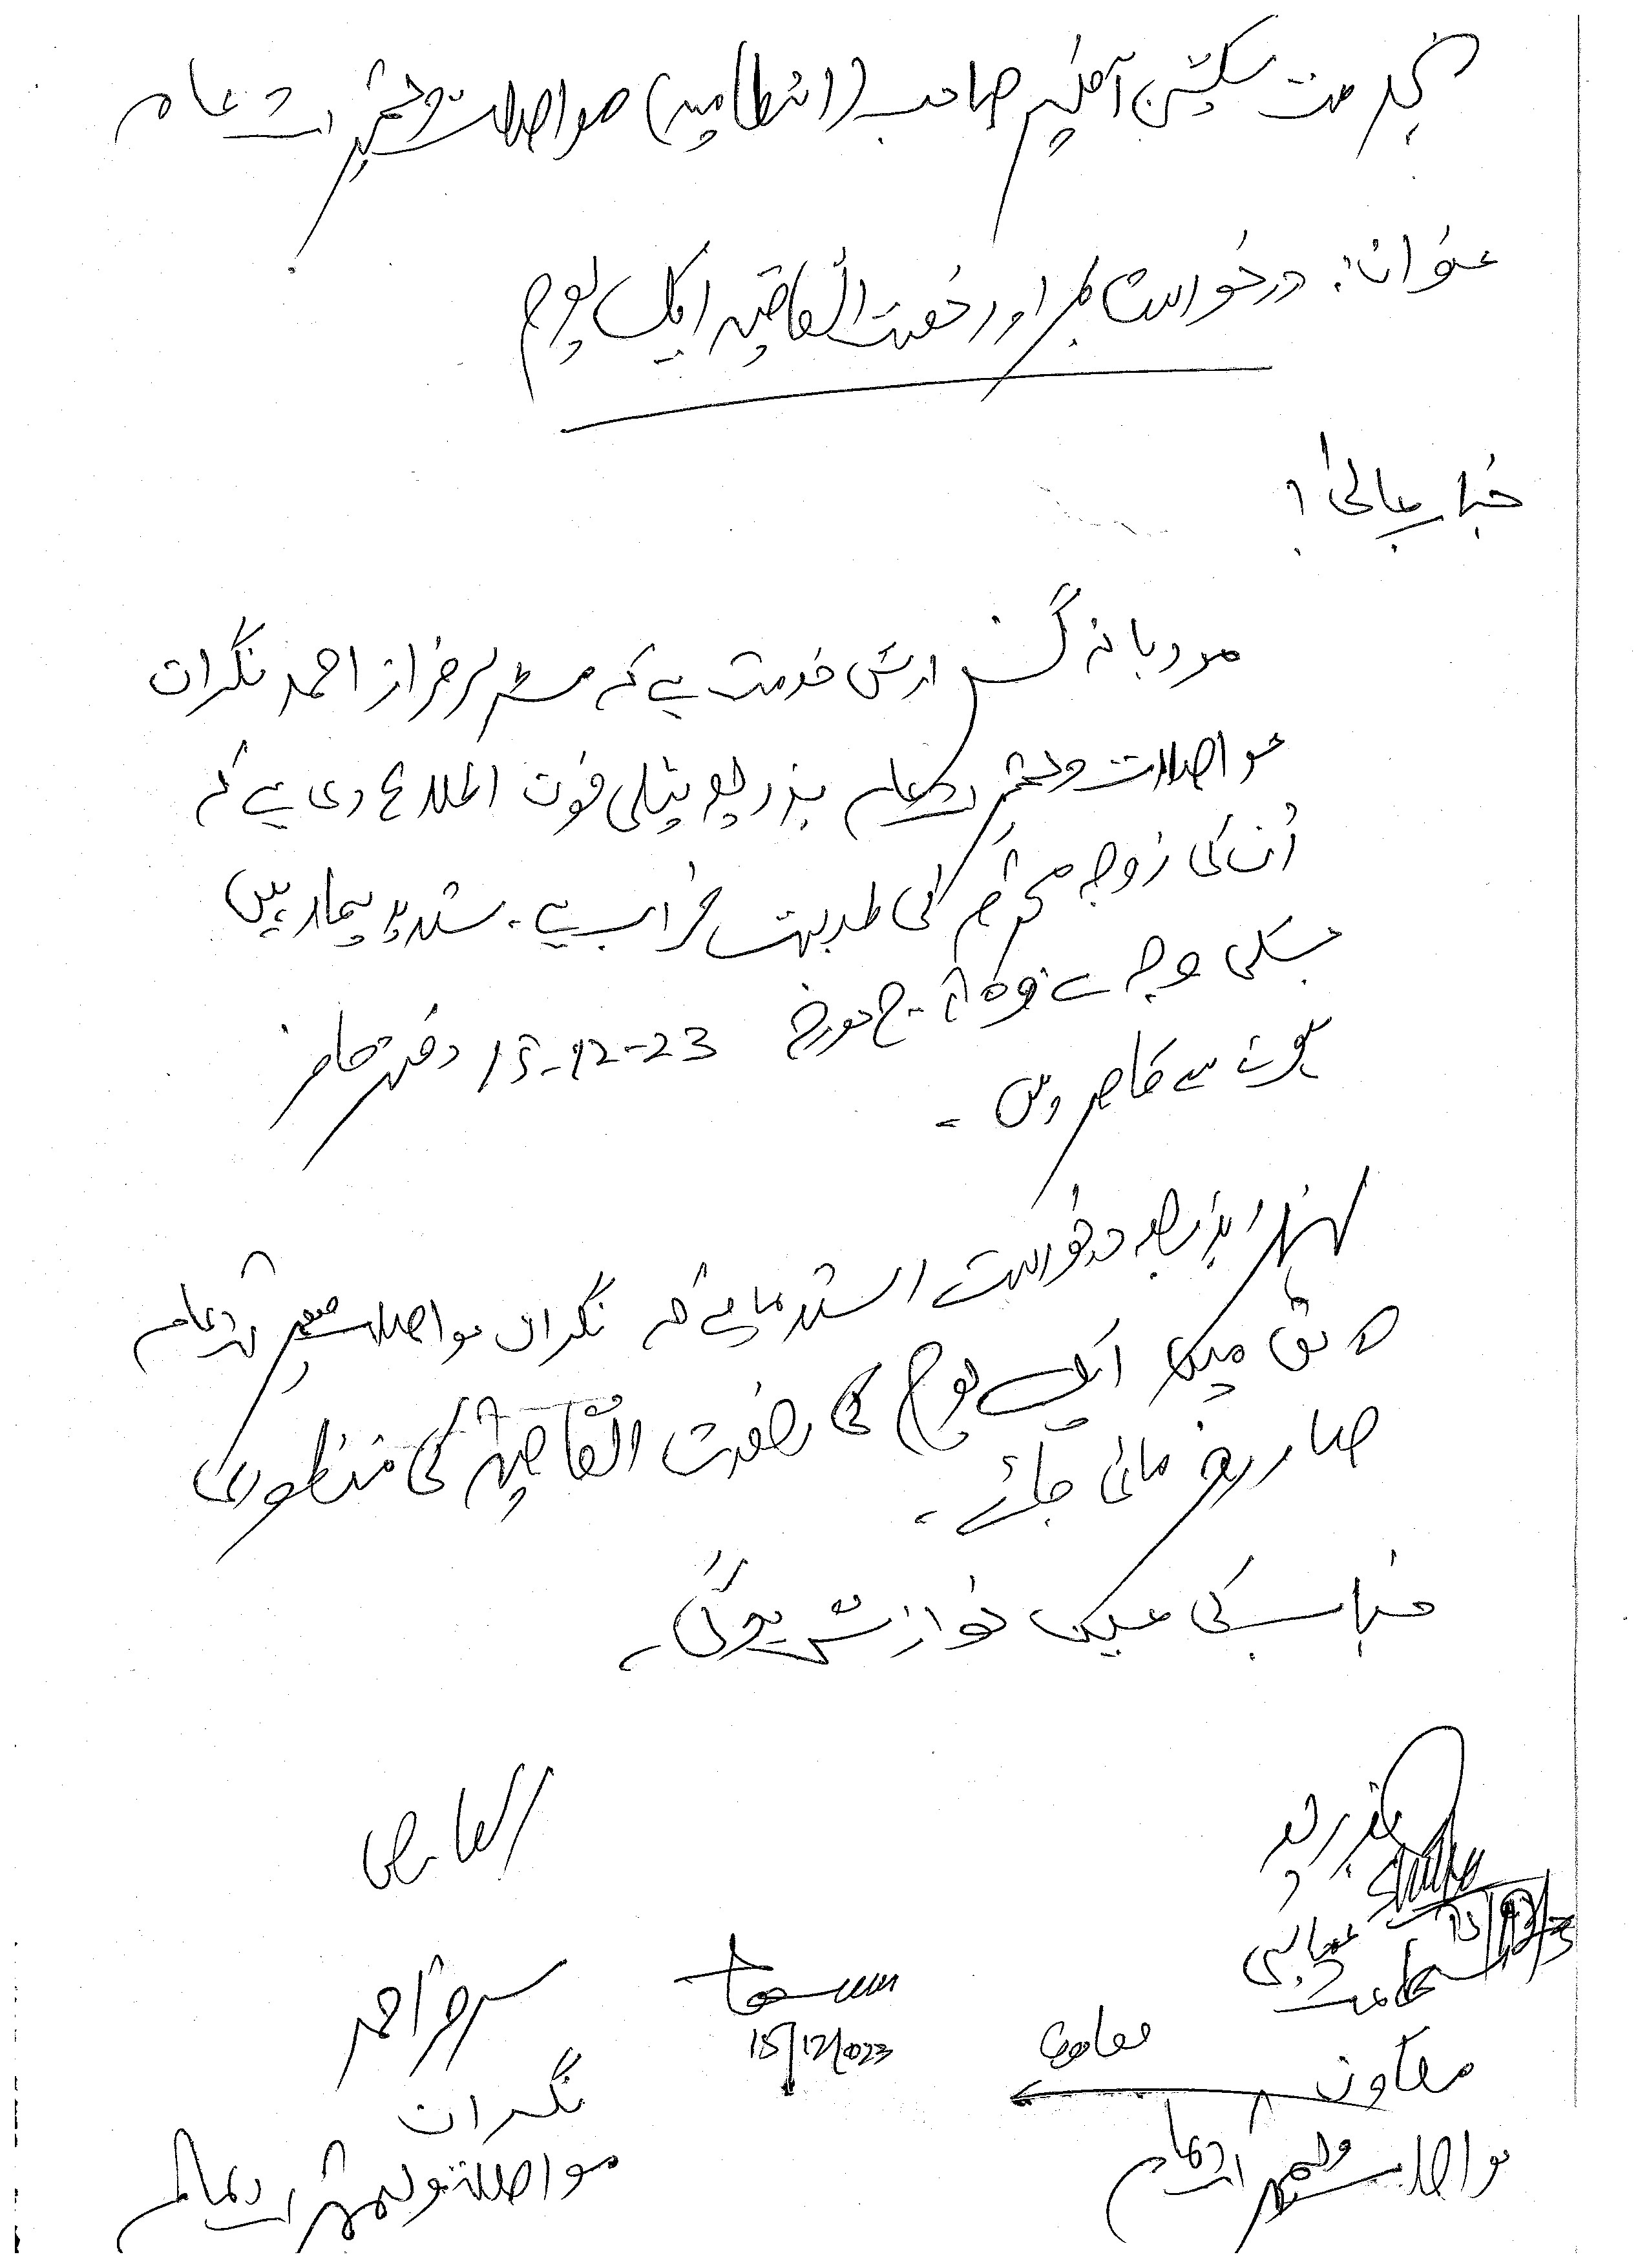 بخدمت سیکشن آفیسر صاحب (انتظامیہ) مواصلات و تعمیرات عامہ
عنوان: درخواست بمراد رخصت اتفاقیہ ایک یوم
جناب عالی!
مودبانہ گزارش خدمت ہے کہ مسٹر سرفراز احمد نگران
مواصلات و تعمیرات عامہ بذریعہ ٹیلی فون اطلاع دی ہے کہ
اُن کی زوجہ محترمہ کی طبیعت خراب ہے۔ شدید بیمار ہیں
جسکی وجہ سے وہ آج مورخہ 15-12-23 دفتر حاضر
ہونے سے قاصر ہیں۔
لہذا بذریعہ درخواست استدعا ہے کہ نگران مواصلات و تعمیرات عامہ
کے حق میں ایک یوم کی رخصت اتفاقیہ کی منظوری
صادر فرمائی جائے۔
جناب کی عین نوازش ہوگی۔
العارض
بذریعہ
15/12/23
سرفراز احمد
15/12/023
عباسی
معاون
نگران
مواصلات و تعمیرات عامہ
مواصلات و تعمیرات عامہ